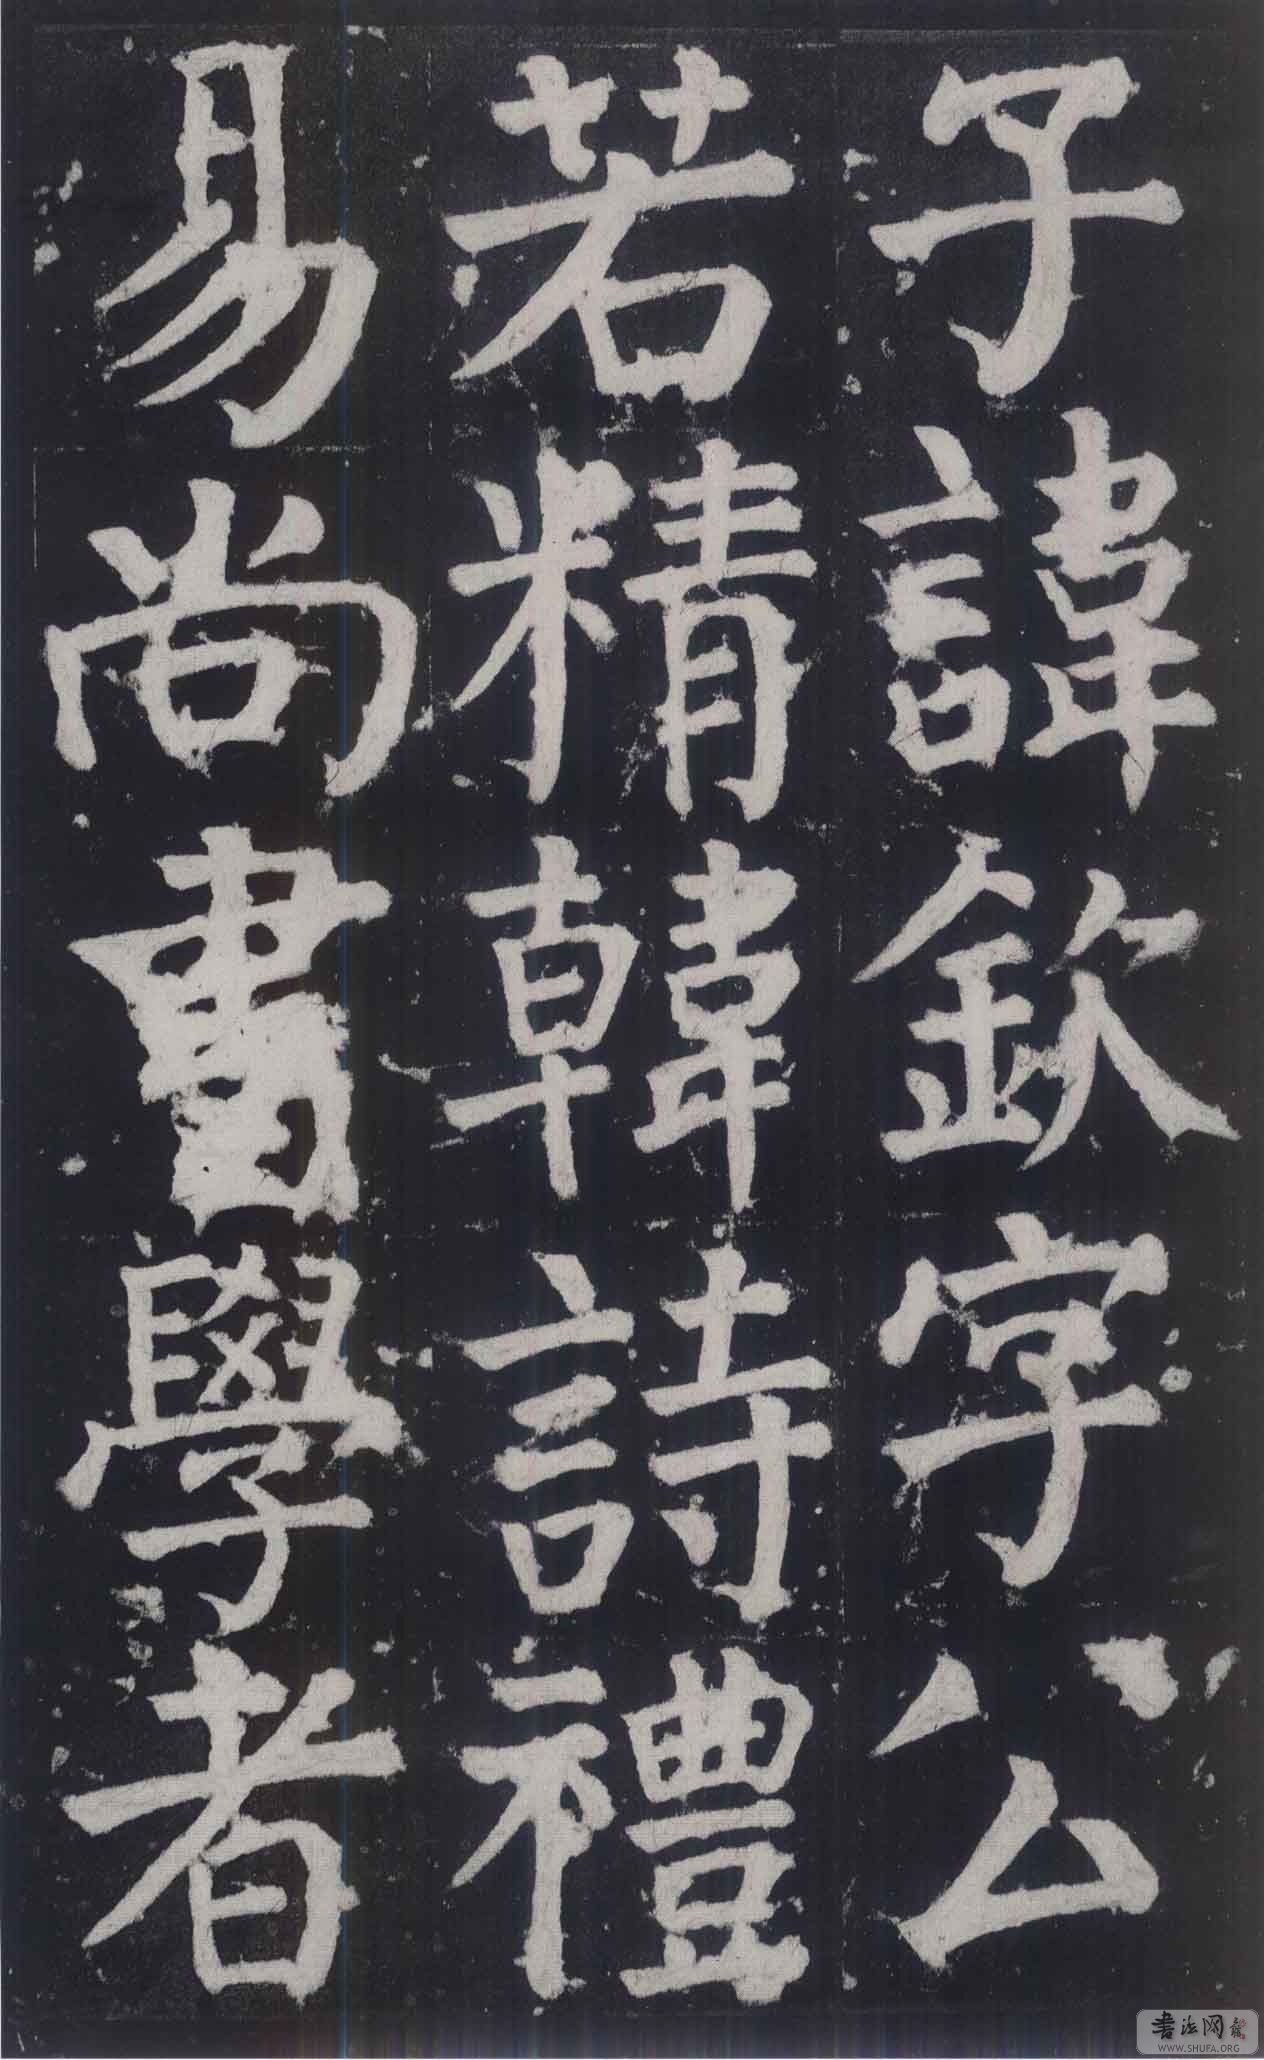 子諱欽字公
若精韓詩禮
易尚書學者
书法网
WWW.SHUFA.ORG